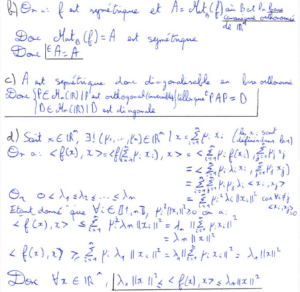 b) On a : f est symétrique et A = Mat_B(f) où B est la base
canonique orthonormée
de ℝ^n
Donc Mat_B(f) = A est symétrique
Donc ᵗA = A
c) A est symétrique donc diagonalisable en base orthonormée
Donc ∃ P ∈ M_n(ℝ) | P est orthogonal telle que ᵗPAP = D
D ∈ M_n(ℝ) | D est diagonale
d) Soit x ∈ ℝ^n, ∃! (μ_1, ..., μ_n) ∈ ℝ^n / x = Σ μ_i x_i (les x_i sont
On a : <f(x), x> = <f(Σ μ_i x_i), x> = <Σ μ_i f(x_i), Σ μ_j x_j>
= <Σ μ_i λ_i x_i, Σ μ_j x_j>
= Σ Σ μ_i μ_j λ_i <x_i, x_j>
= Σ μ_i² λ_i ||x_i||² car ∀ i ≠ j
<x_i, x_j> = 0
Or 0 < λ_1 ≤ λ_2 ≤ ... ≤ λ_n
Étant donné que ∀ i ∈ ⟦1, n⟧, μ_i² ||x_i||² ≥ 0 on a :
<f(x), x> ≤ Σ μ_i² λ_n ||x_i||² = λ_n Σ μ_i² ||x_i||²
= λ_n ||x||²
<f(x), x> ≥ Σ μ_i² λ_1 ||x_i||² = λ_1 Σ μ_i² ||x_i||² = λ_1 ||x||²
Donc ∀ x ∈ ℝ^n, λ_1 ||x||² ≤ <f(x), x> ≤ λ_n ||x||²